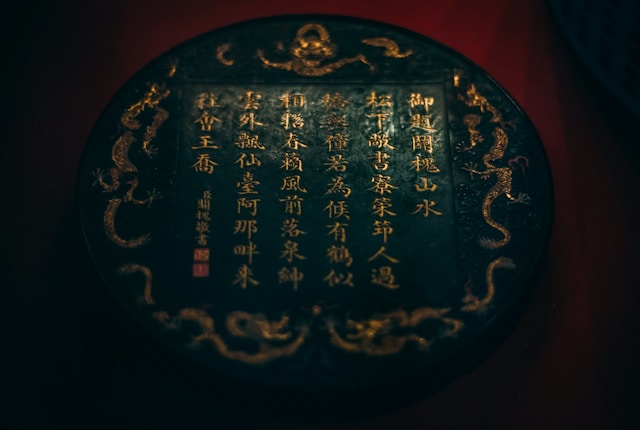 御題關槐山水
松下敞書寮策邛人過
橋僮若為候有鶴似
相招春籟風前落泉紳
雲外飄仙臺阿那畔來
社會王喬
臣關槐敬書